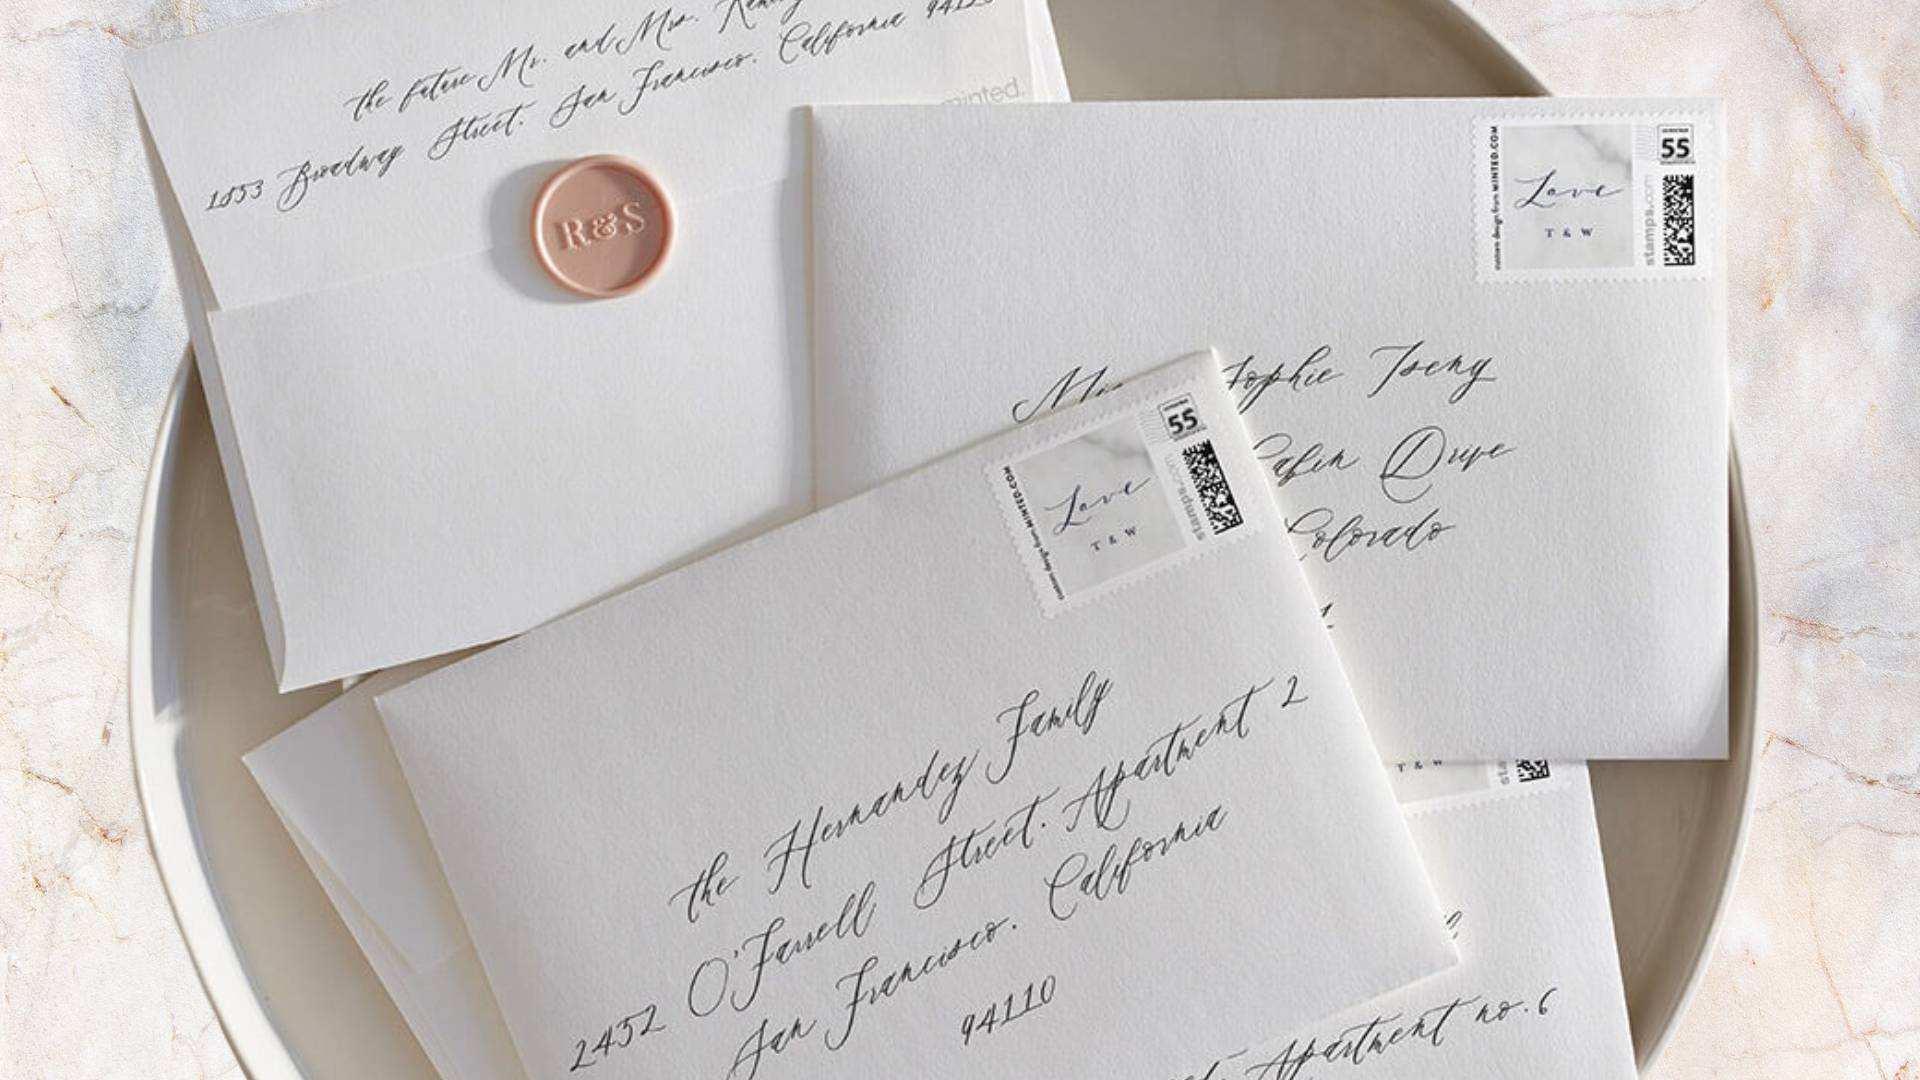 the future Mr. and Mrs.
1853 Broadway Street. San Francisco. California
minted.
R&S
custom design from MINTED.COM
Love
T & W
55
stamps.com
Sophie Tseng
Drive
Colorado
custom design from MINTED.COM
Love
T & W
55
stamps.com
the Hernandez Family
2452 O'Farrell Street. Apartment 2
San Francisco. California
94110
T & W
Apartment no. 6